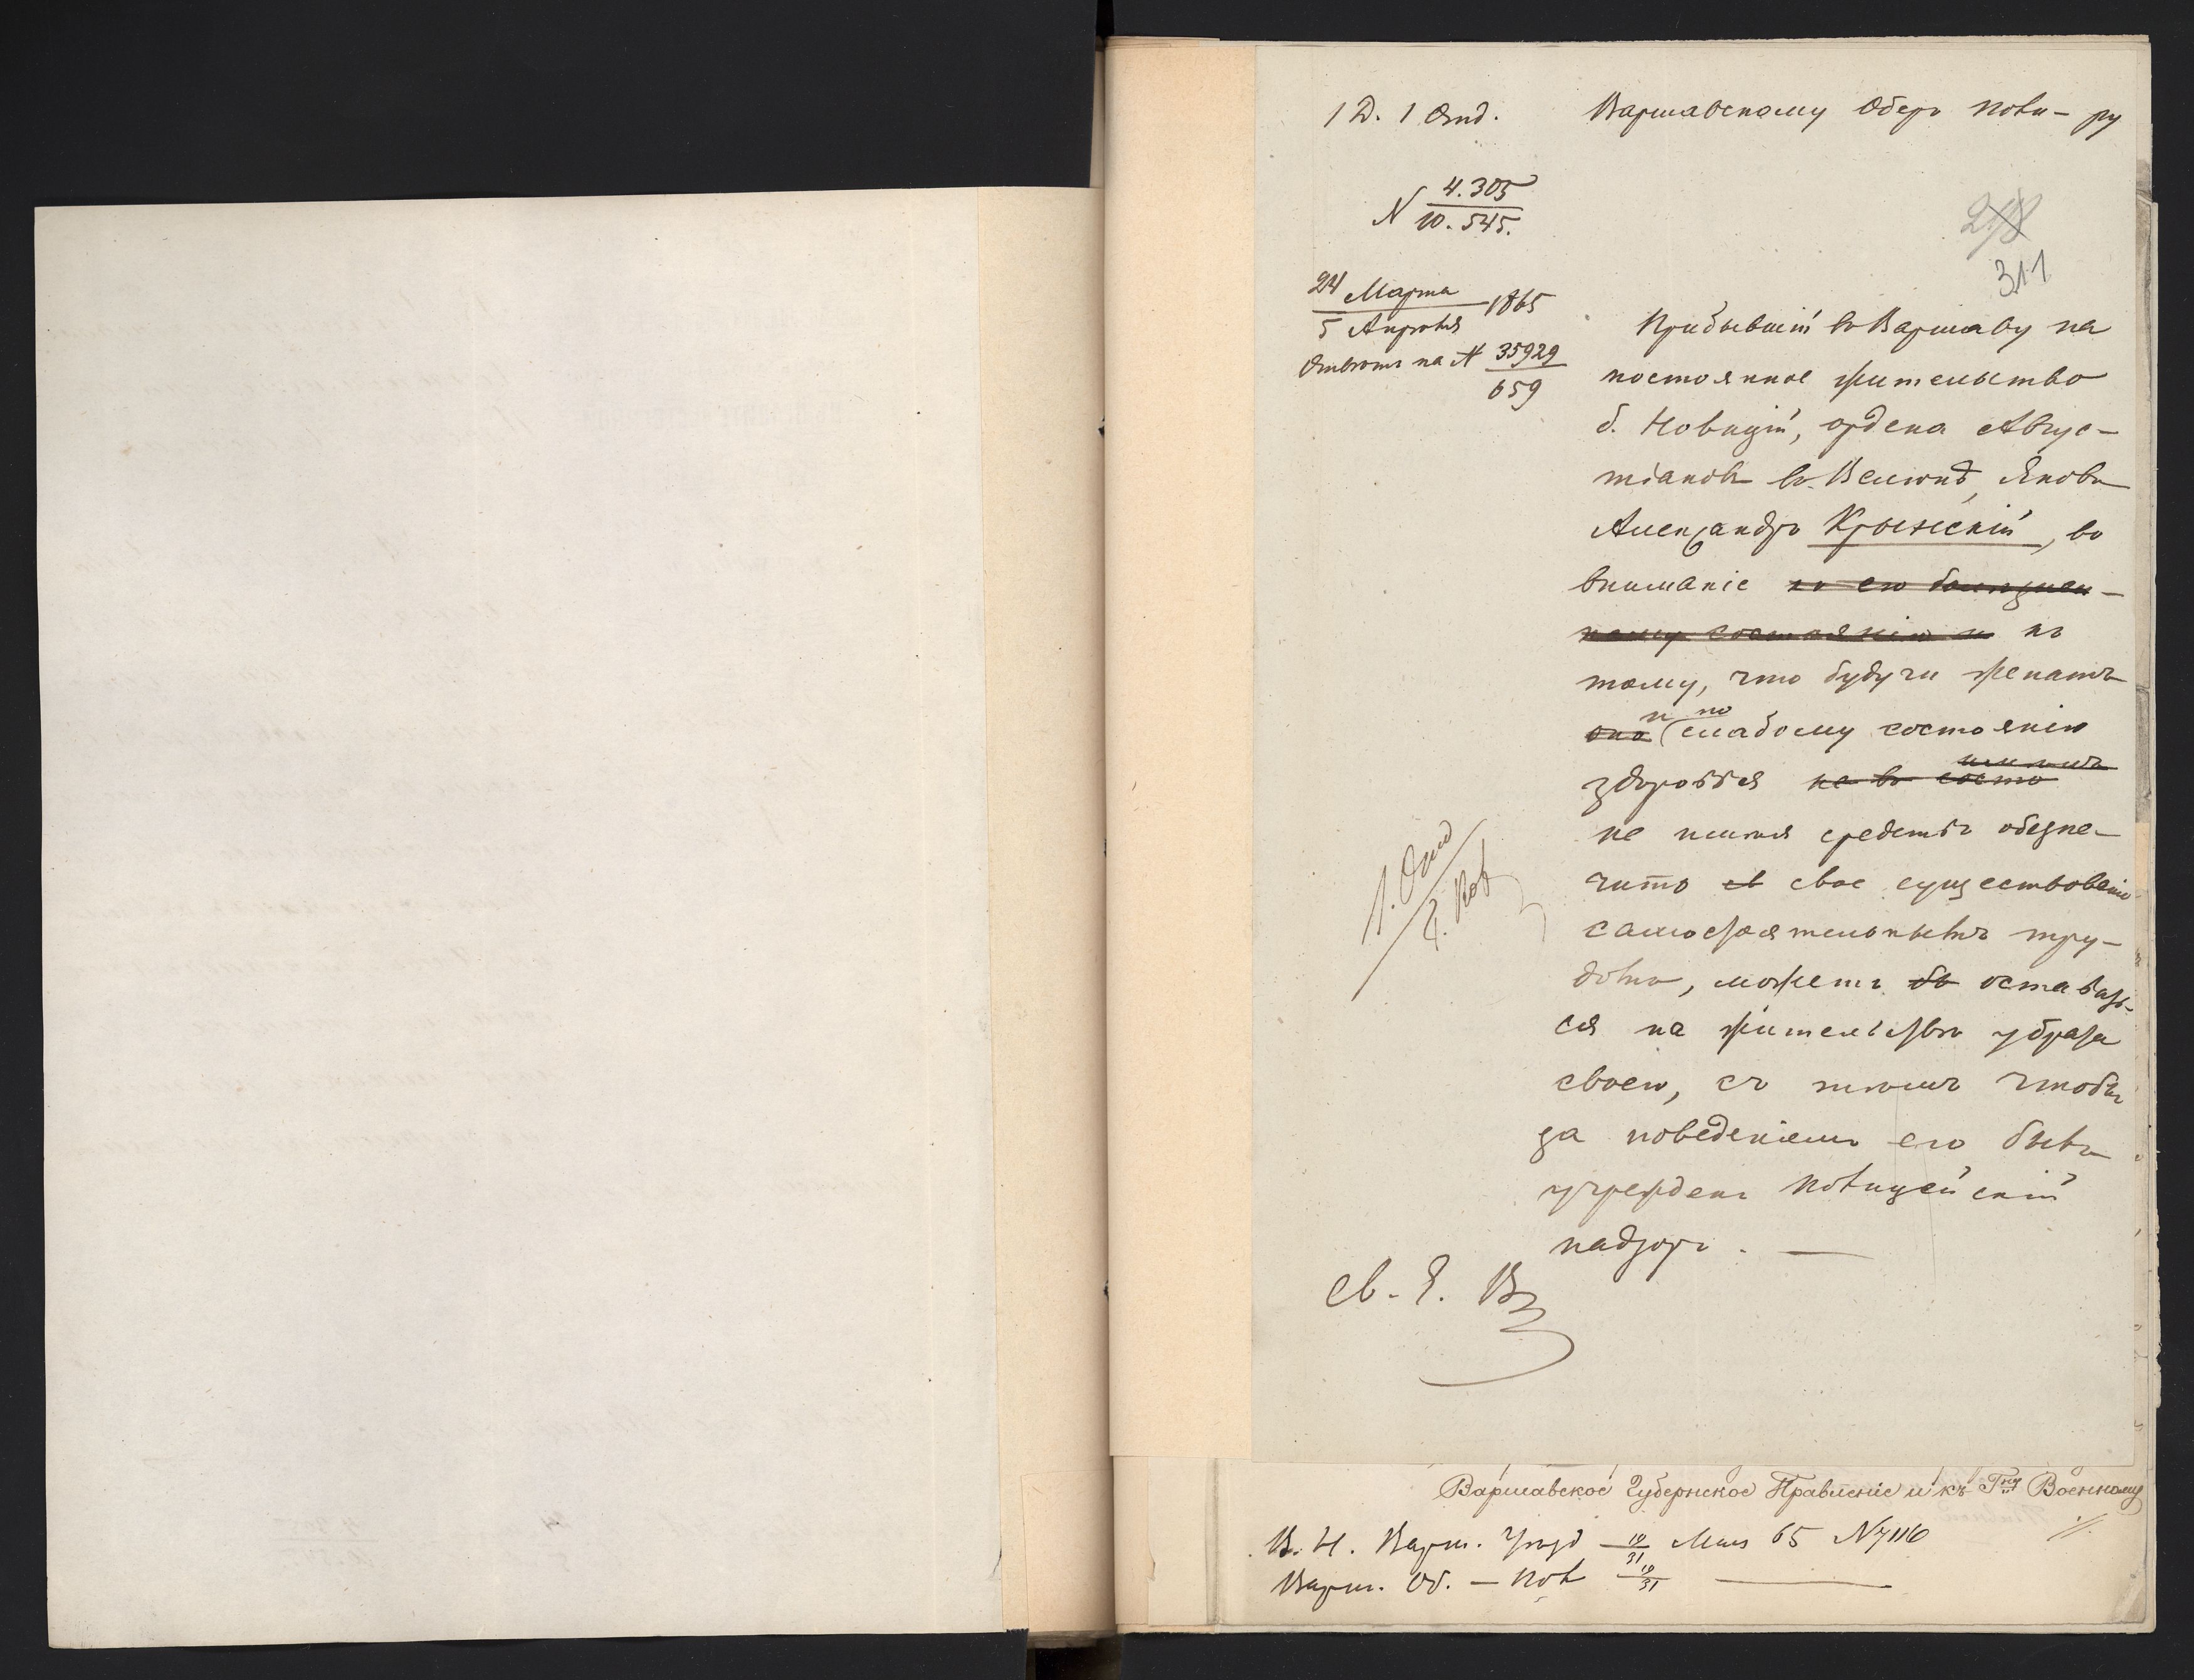 1 Д. 1 Отд.
Варшавскому Обер Поли-ру
N 4.305
10.545.
218
311
24 Марта
5 Апреля 1865
Ответ на N 35929
659
Прибывший в Варшаву на
постоянное жительство
б. Новиций, ордена Авгус-
тианов в Велюне, Яков
Александр Крыжский, во
внимание к его болезнен-
ному состоянию и к
тому, что будучи
оно и по слабому состоянию
здоровья не в состо
не имея средств обезпе-
чить свое существование
самостоятельным тру-
дом, может бы оставать-
ся на жительстве у брата
своего, с тем чтобы
за поведением его был
учрежден Полицейский
надзор. —
1. Отд
Св. Е. В
Варшавское Губернское Правленіе и къ Гну Военному
В. Н. Варш. Уезд 19/31 Мая 65 N 7116
Варш. Об. — Пол 19/31 —